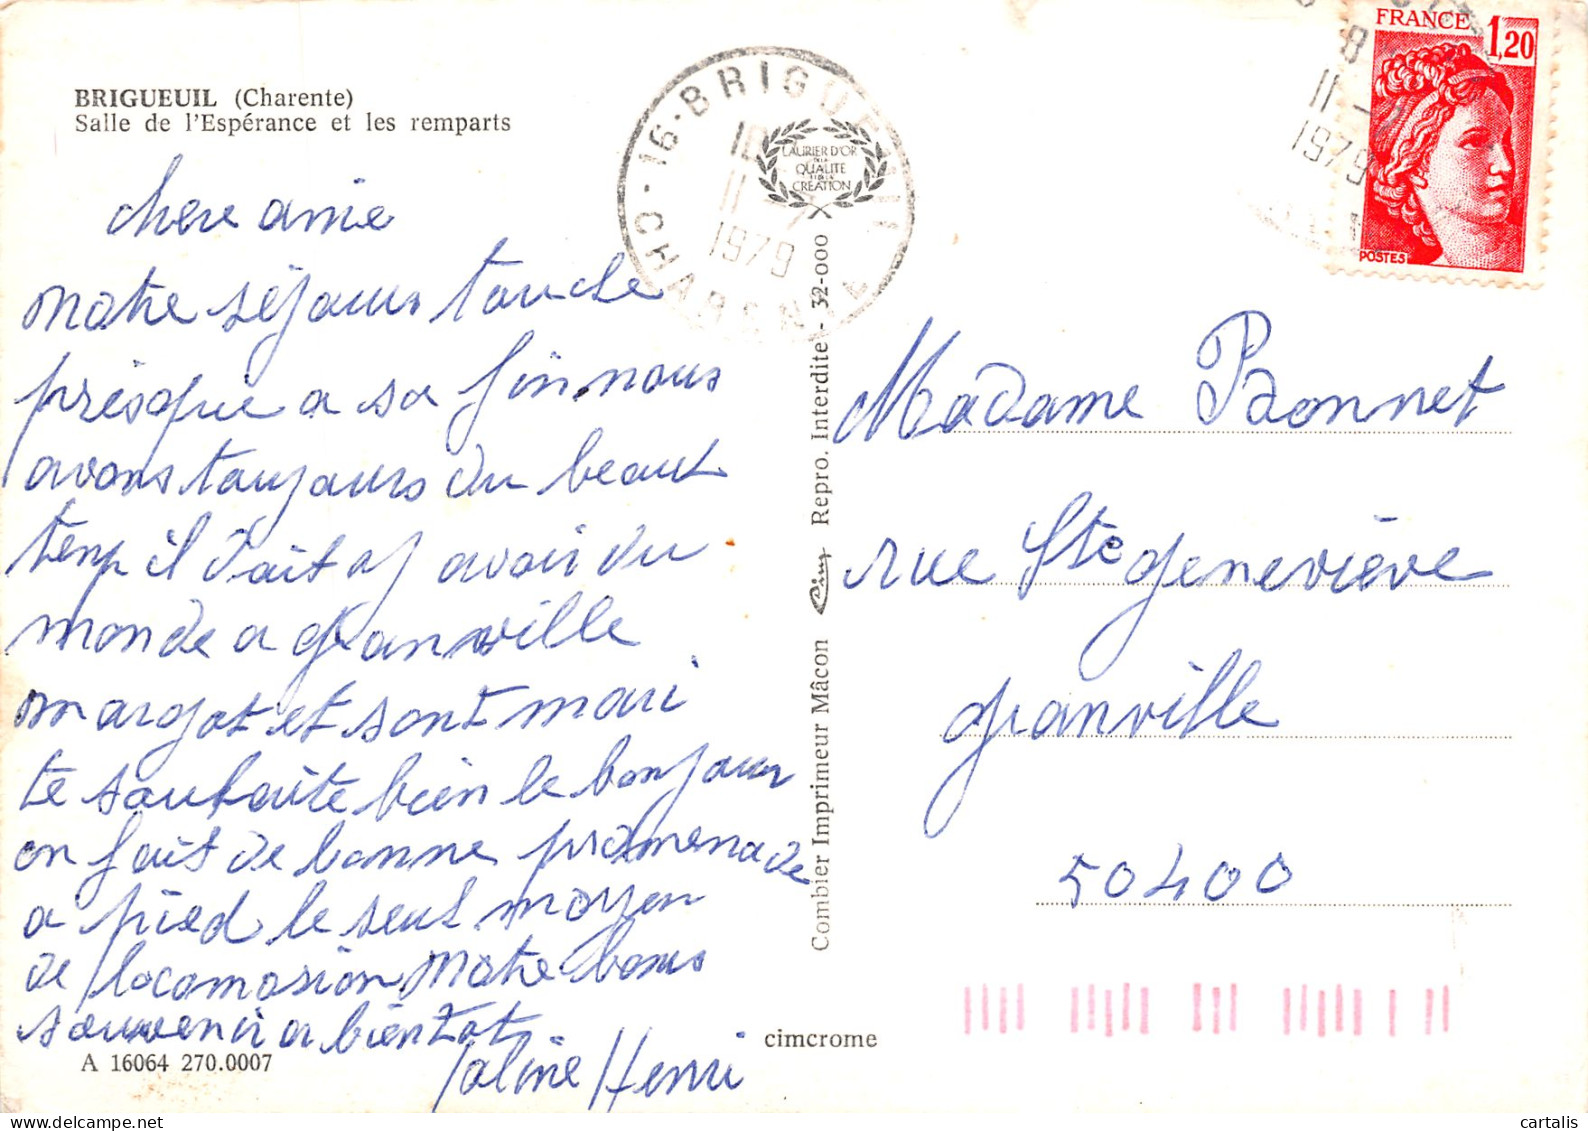 BRIGUEUIL (Charente)
Salle de l'Espérance et les remparts
chere amie
notre séjours touche
présque a sa fin nous
avons toujours du beaut
temp il doit y avoir du
monde a granville
margot et sont mari
te souhaite bien le bonjour
on fait de bonne promenade
a pied le seul moyen
de locomosion notre bons
souvenir a bientot
Henri
A 16064 270.0007
16-BRIGUEUIL
CHARENTE
11 - 7
1979
LAURIER D'OR
DE LA
QUALITE
ET DE LA
CREATION
Combier Imprimeur Mâcon Repro. Interdite - 32-000
cimcrome
FRANCE 1,20
POSTES
11 - 7
1979
Madame Bonnet
rue Ste geneviève
granville
50400
cartalis
www.delcampe.net